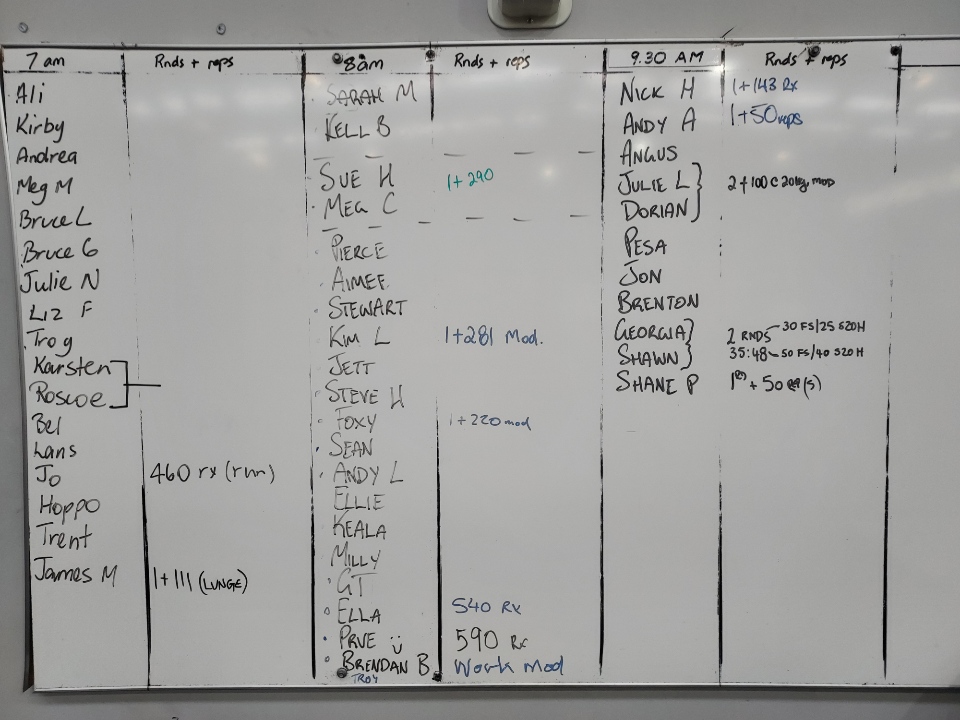 7 am Rnds + reps
Ali
Kirby
Andrea
Meg M
Bruce L
Bruce G
Julie N
Liz F
Troy
Karsten
Roscoe
Bel
Lans
Jo 460 rx (run)
Hoppo
Trent
James M 1+111 (LUNGE)
8am Rnds + reps
SARAH M
KELL B
SUE H 1+290
MEG C
PIERCE
AIMEE
STEWART
KIM L 1+281 Mod.
JETT
STEVE H
FOXY 1+220 mod
SEAN
ANDY L
ELLIE
KEALA
MILLY
GT
ELLA 540 Rx
PRUE 590 Rx
BRENDAN B Work Mod
TROY
9.30 AM Rnds + reps
NICK H 1+143 Rx
ANDY A 1+50 reps
ANGUS
JULIE L 2+100 @ 20kg, mod
DORIAN
PESA
JON
BRENTON
GEORGIA 2 RNDS 30 FS/25 S2OH
SHAWN 35:48 50 FS/40 S2OH
SHANE P 1 + 50